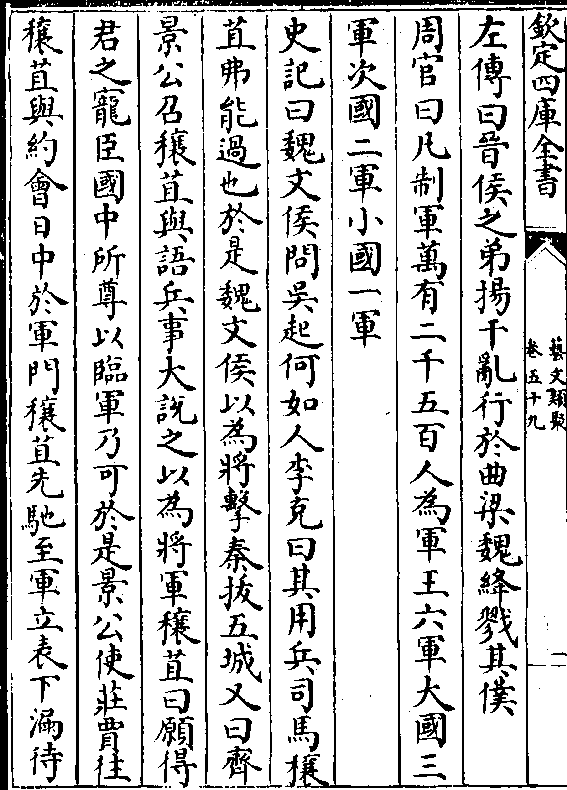 欽定四庫全書
藝文類聚
卷五十九
一
左傳曰晉侯之弟揚干亂行於曲梁魏絳戮其僕
周官曰凡制軍萬有二千五百人為軍王六軍大國三
軍次國二軍小國一軍
史記曰魏文侯問吳起何如人李克曰其用兵司馬穰
苴弗能過也於是魏文侯以為將擊秦拔五城又曰齊
景公召穰苴與語兵事大說之以為將軍穰苴曰願得
君之寵臣國中所尊以臨軍乃可於是景公使莊賈往
穰苴與約會日中於軍門穰苴先馳至軍立表下漏待